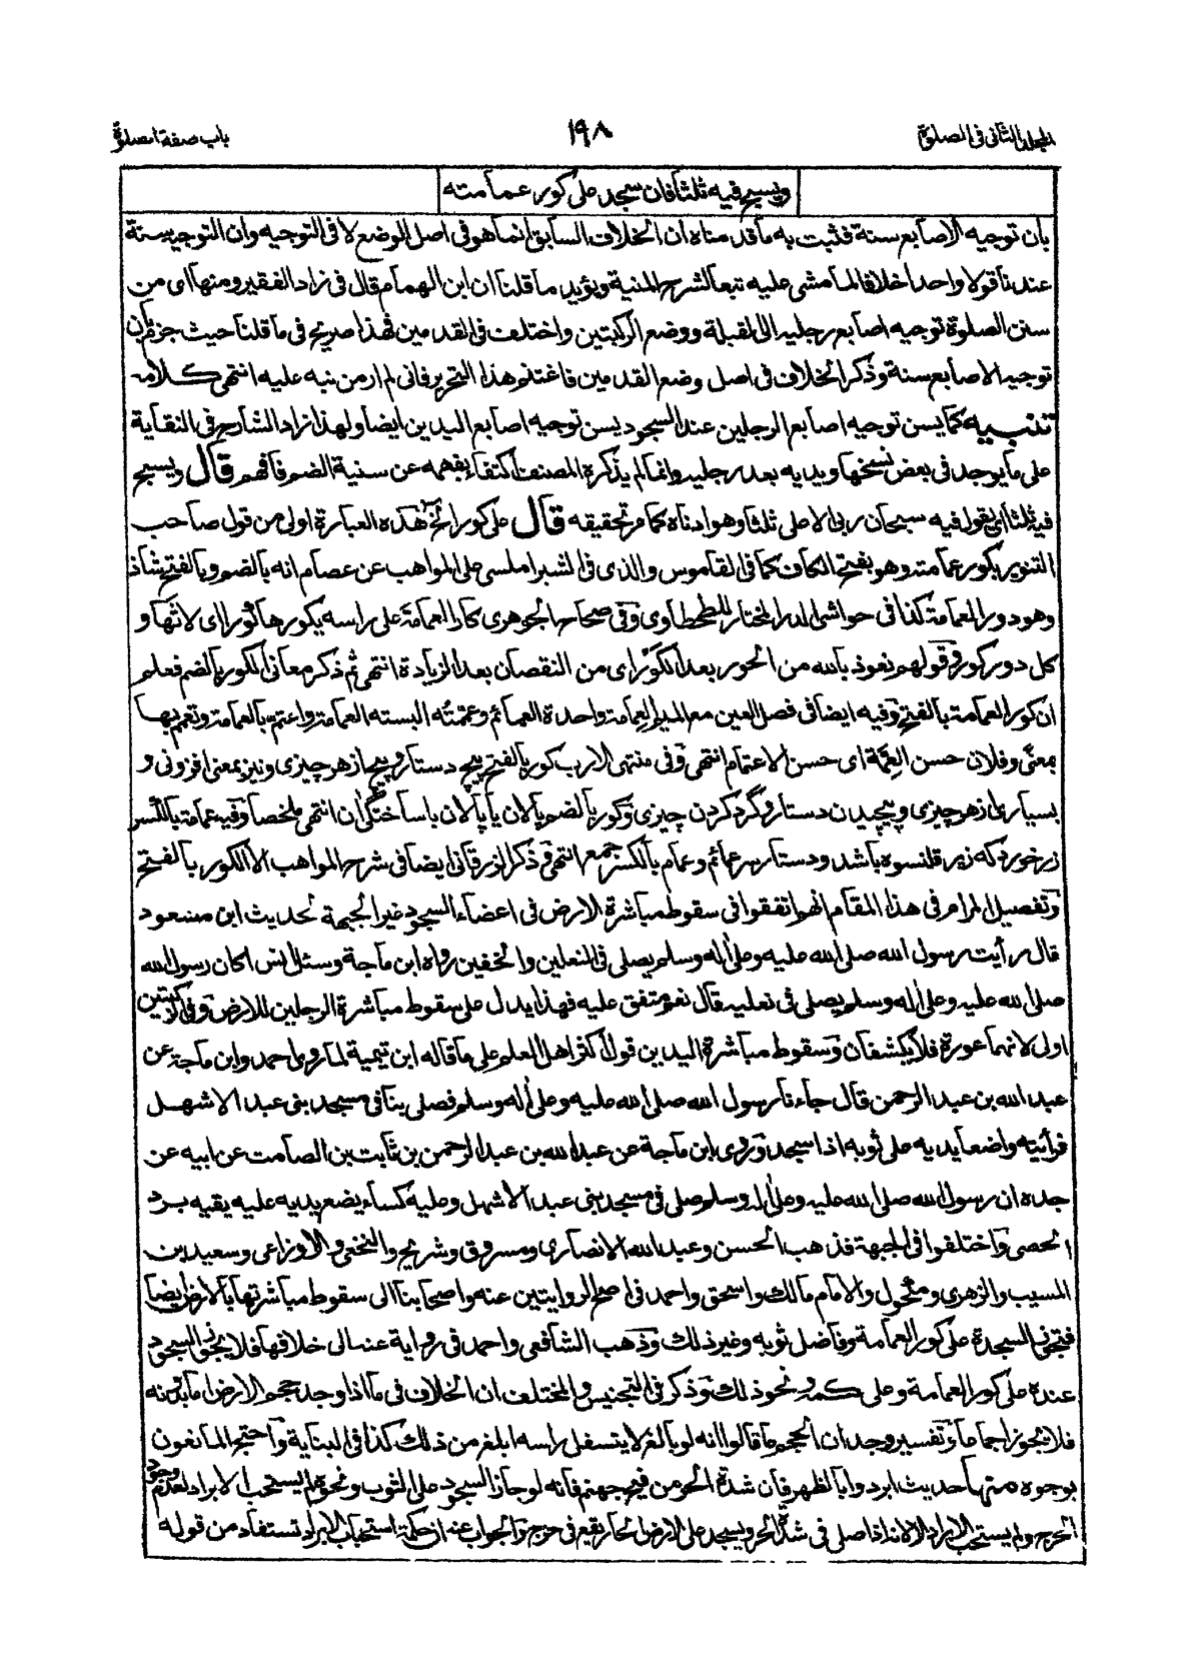 المجلد الثانى فى الصلوة
١٩٨
باب صفة الصلوة
ويسبح فيه ثلثا فان سجد على كور عمامته
بان توجيه الاصابع سنة فثبت به ما قدمناه ان الخلاف السابق انما هو فى اصل الوضع لا فى التوجيه وان التوجيه سنة
عندنا قولا واحدا خلافا لما مشى عليه تبعا لشرح المنية ويؤيد ما قلنا ان ابن الهمام قال فى زاد الفقير ومنها اى من
سنن الصلوة توجيه اصابع رجليه الى القبلة ووضع الركبتين واختلف فى القدمين فهذا صريح فى ما قلنا حيث جزم بان
توجيه الاصابع سنة وذكر الخلاف فى اصل وضع القدمين فاغتنم هذا التحرير فانى لم ار من نبه عليه انتهى كلامه
تنبيه كما يسن توجيه اصابع الرجلين عند السجود يسن توجيه اصابع اليدين ايضا ولهذا زاد الشارح فى النقاية
على ما يوجد فى بعض نسخها ويديه بعد رجليه وانما لم يذكره المصنف اكتفاء بفهمه عن سنية الضم فافهم قال ويسبح
فيه ثلثا اى يقول فيه سبحان ربى الاعلى ثلثا وهو ادناه كما مر تحقيقه قال على كور الخ هذه العبارة اولى من قول صاحب
التنوير بكور عمامته وهو بفتح الكاف كما فى القاموس والذى فى الشبراملسى على المواهب عن عصام انه بالضم وبالفتح شاذ
وهو دور العمامة كذا فى حواشى الدر المختار للطحطاوى وفى صحاح الجوهرى كار العمامة على راسه يكورها كورا اى لاثها و
كل دور كور وقولهم نعوذ بالله من الحور بعد الكور اى من النقصان بعد الزيادة انتهى ثم ذكر معانى الكور بالضم فعلم
ان كور العمامة بالفتح وفيه ايضا فى فصل العين مع الميم العمامة واحدة العمائم وعممته البسته العمامة واعتم بالعمامة وتعمم بها
بمعنى وفلان حسن العمة اى حسن الاعتمام انتهى وفى منتهى الارب كور بالفتح پيچ دستار وپيچ از هر چيزى ونيز بمعنى افزونى و
بسيارى از هر چيزى وپيچيدن دستار وگرد كردن چيزى وكور بالضم پالان يا پالان با ساختگى ان انتهى ملخصا وفيه عمامة بالكسر
زير خود كه زير قلنسوه باشد ودستار سر عمائم وعمام بالكسر جمع انتهى وذكر الزرقانى ايضا فى شرح المواهب الا الكور بالفتح
وتفصيل المرام فى هذا المقام انهم اتفقوا فى سقوط مباشرة الارض فى اعضاء السجود غير الجبهة لحديث ابن مسعود
قال رأيت رسول الله صلى الله عليه وعلى اله وسلم يصلى فى النعلين والخفين رواه ابن ماجة وسئل انس اكان رسول الله
صلى الله عليه وعلى اله وسلم يصلى فى نعليه قال نعم متفق عليه فهذا يدل على سقوط مباشرة الرجلين للارض وفى الركبتين
اولى لانهما عورة فلا يكشفان وسقوط مباشرة اليدين قول اكثر اهل العلم على ما قاله ابن تيمية لما روى احمد وابن ماجة عن
عبد الله بن عبد الرحمن قال جاءنا رسول الله صلى الله عليه وعلى اله وسلم فصلى بنا فى مسجد بنى عبد الاشهل
فرأيته واضعا يديه على ثوبه اذا سجد وروى ابن ماجة عن عبد الله بن عبد الرحمن بن ثابت بن الصامت عن ابيه عن
جده ان رسول الله صلى الله عليه وعلى اله وسلم صلى فى مسجد بنى عبد الاشهل وعليه كساء يضع يديه عليه يقيه برد
الحصى واختلفوا فى الجبهة فذهب الحسن وعبد الله الانصارى ومسروق وشريح والنخعى والاوزاعى وسعيد بن
المسيب والزهرى ومكحول والامام مالك واسحق واحمد فى اصح الروايتين عنه واصحابنا الى سقوط مباشرتها بالارض ايضا
فتجزئ السجدة على كور العمامة وفاضل ثوبه وغير ذلك وذهب الشافعى واحمد فى رواية عنه الى خلافها فلا يجزئ السجود
عنده على كور العمامة وعلى كمه ونحو ذلك وذكر فى التجنيس والمختلف ان الخلاف فى ما اذا وجد حجم الارض اما بدونه
فلا تجوز اجماعا وتفسير وجدان الحجم ما قالوا انه لو بالغ لا يتسفل راسه ابلغ من ذلك كذا فى البناية واحتج المانعون
بوجوه منها حديث ابردوا بالظهر فان شدة الحر من فيح جهنم فانه لو جاز السجود على الثوب ونحوه لم يستحب الابراد لعدم وجود
الحرج ولم يستحب الابراد الا لانه اذا صلى فى شدة الحر ويسجد على الارض الحار يقع فى حرج والجواب عنه ان حكمة استحباب الابراد تستفاد من قوله